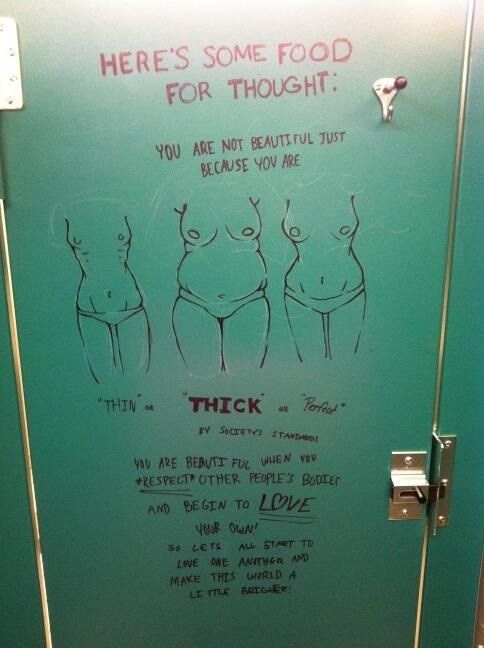 HERE'S SOME FOOD
FOR THOUGHT:
YOU ARE NOT BEAUTIFUL JUST
BECAUSE YOU ARE
"THIN" OR "THICK" OR "Perfect"
BY SOCIETY'S STANDARDS
YOU ARE BEAUTIFUL WHEN YOU
*RESPECT* OTHER PEOPLE'S BODIES
AND BEGIN TO LOVE
YOUR OWN!
SO LETS ALL START TO
LOVE ONE ANOTHER AND
MAKE THIS WORLD A
LITTLE BRIGHER!